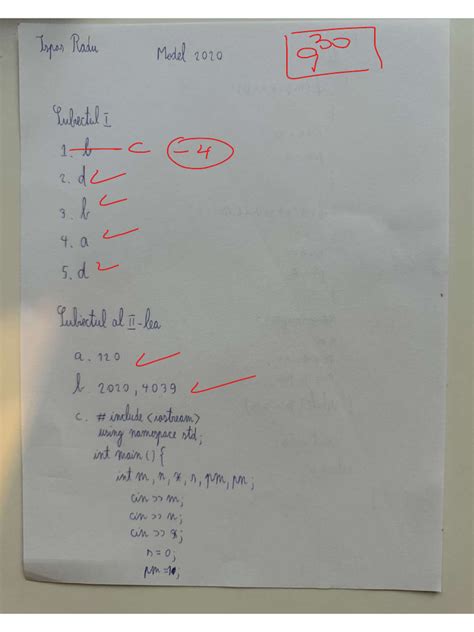 Ispas Radu
Model 2020
9³⁰
Subiectul I
1. b c = 4
2. d
3. b
4. a
5. d
Subiectul al II-lea
a. 120
b. 2020, 4039
c. # include <iostream>
using namespace std;
int main () {
int m, n, x, s, pm, pn;
cin >> m;
cin >> n;
cin >> x;
s = 0;